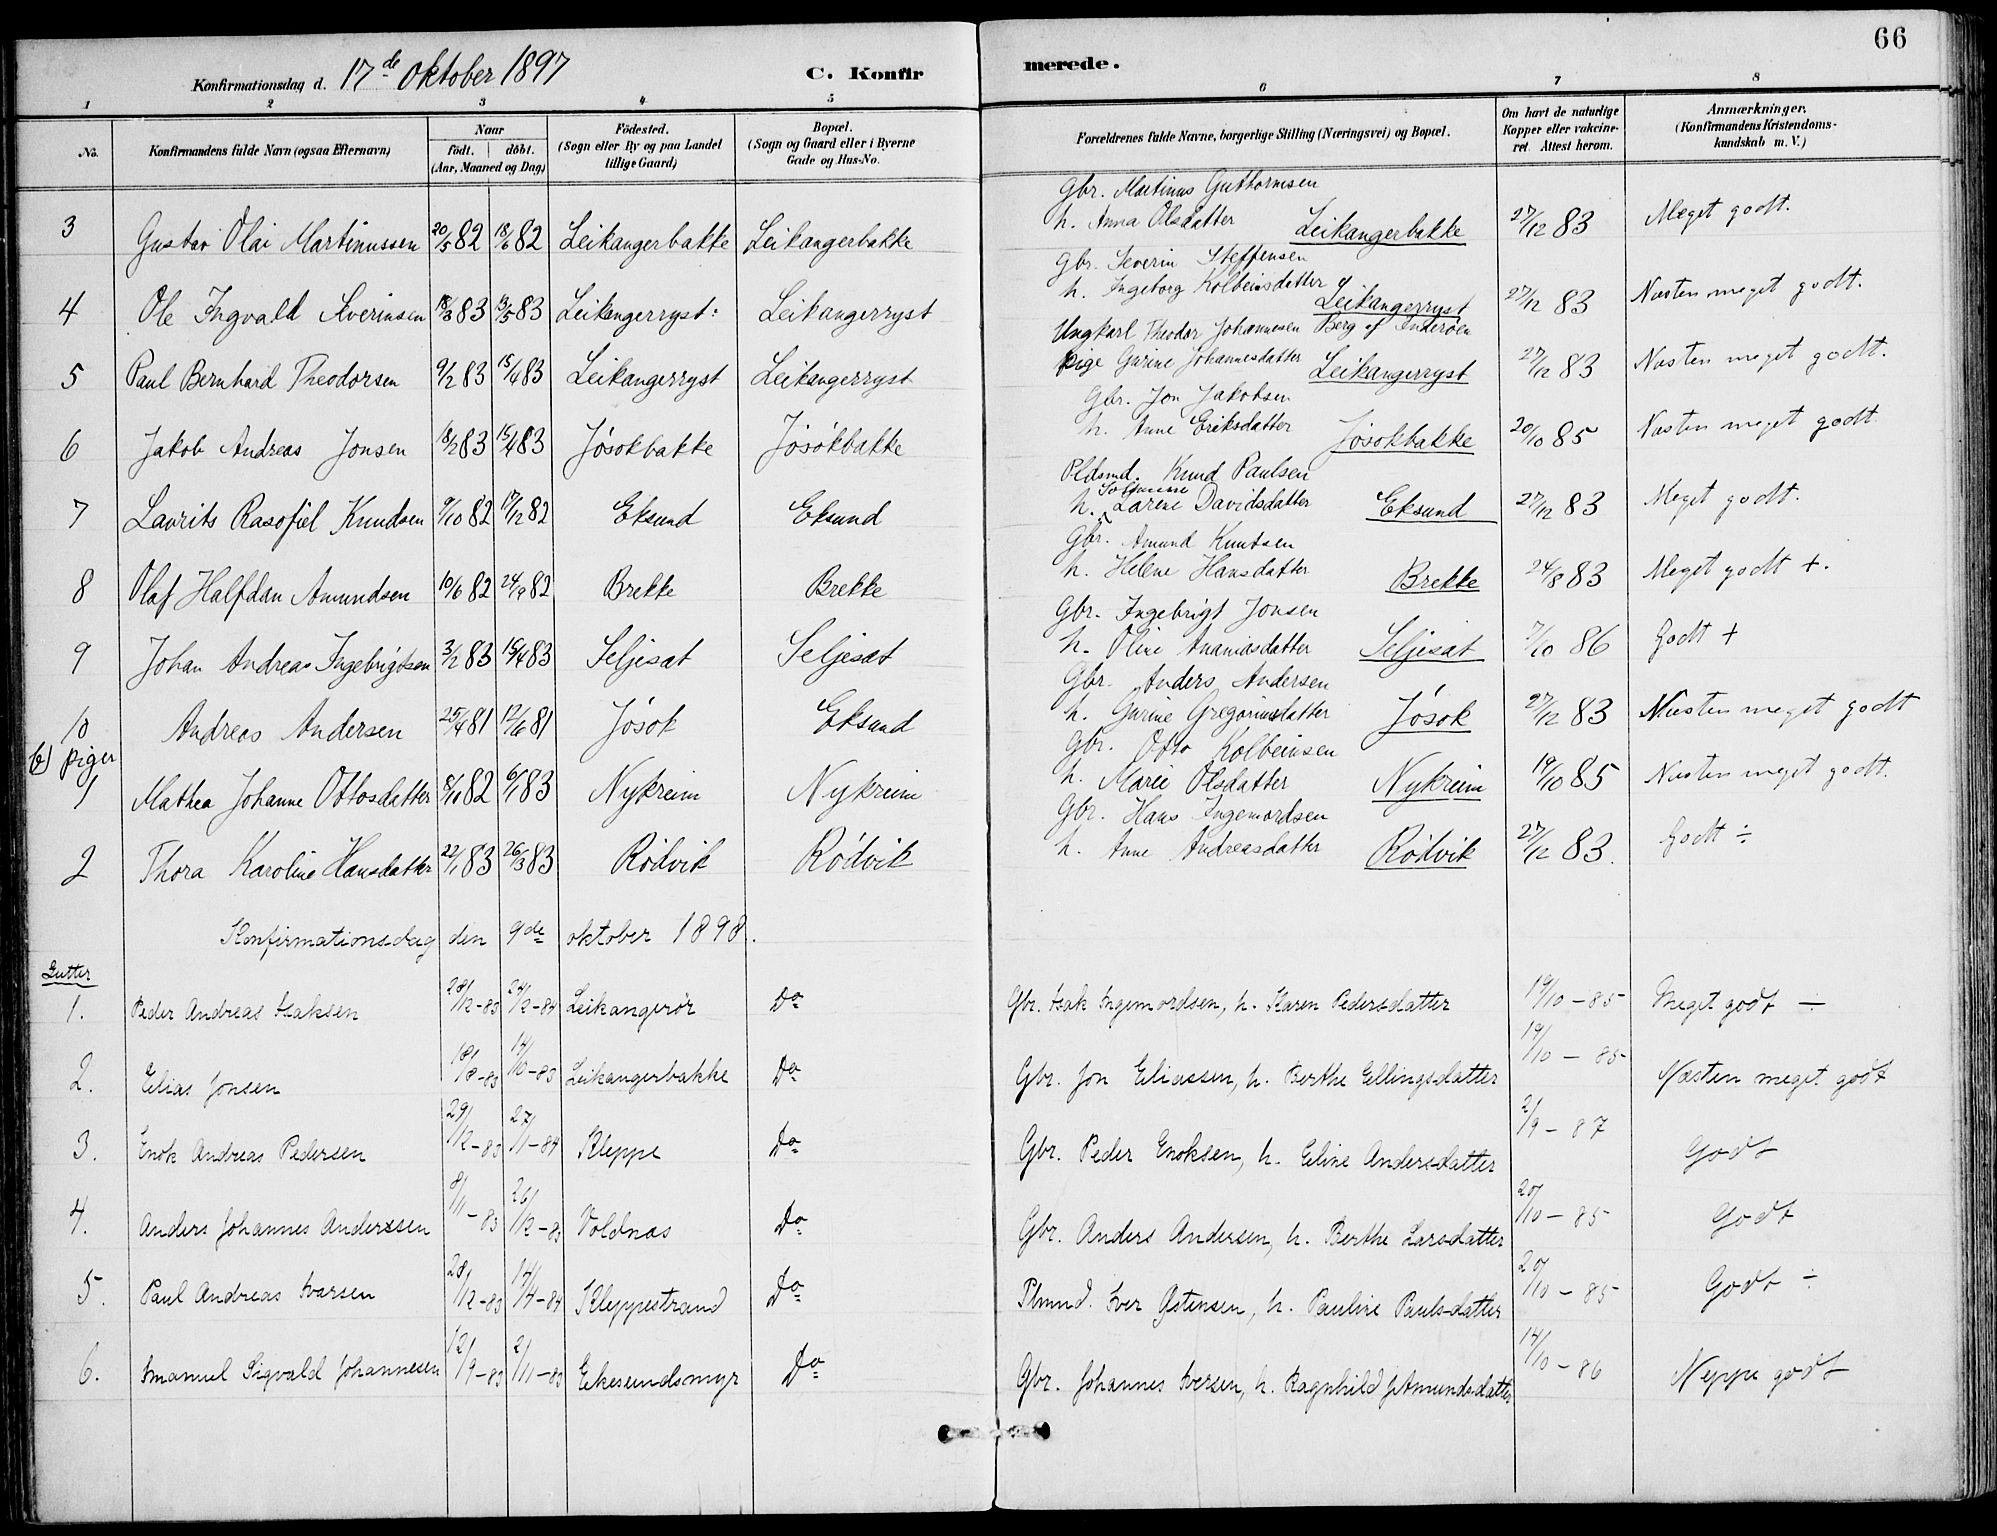 66
Konfirmationsdag d. 17de Oktober 1897 C. Konfirmerede.
1 2 3 4 5 6 7 8
No. Konfirmandens fulde Navn (ogsaa Efternavn) Naar födt. döbt. (Aar, Maaned og Dag) Födested. (Sogn eller By og paa Landet tillige Gaard) Bopæl. (Sogn og Gaard eller i Byerne Gade og Hus-No. Forældrenes fulde Navne, borgerlige Stilling (Næringsvei) og Bopæl. Om havt de naturlige Kopper eller vakcineret Attest herom. Anmærkninger. (Konfirmandens Kristendomskundskab m. V.)
Gbr. Martinus Guttormsen
3 Gustav Olai Martinussen 20/5 82 18/6 82 Leikangerbakke Leikangerbakke h. Anna Olsdatter Leikangerbakke 27/12 83 Meget godt.
Gbr. Severin Steffensen
4 Ole Ingvald Severinsen 18/3 83 13/5 83 Leikangerryst: Leikangerryst h. Ingeborg Kolbeinsdatter Leikangerryst 27/12 83 Næsten meget godt.
Ungkarl Theodor Johannesen Berg af Inderöen
5 Paul Bernhard Theodorsen 9/2 83 15/4 83 Leikangerryst Leikangerryst pige Gurine Johannesdatter Leikangerryst 27/12 83 Næsten meget godt.
Gbr. Jon Jakobsen
6 Jakob Andreas Jonsen 18/2 83 15/4 83 Jósokbakke Jósókbakke h. Anne Eriksdatter Jósokbakke 20/10 85 Næsten meget godt.
Pldsmd. Knud Paulsen
7 Lavrits Rasofiel Knudsen 9/10 82 17/12 82 Eksund Eksund h. Larene Davidsdatter Eksund 27/12 83 Meget godt.
Gbr. Amund Knutsen
8 Olaf Halfdan Amundsen 10/6 82 24/9 82 Brekke Brekke h. Helene Hansdatter Brekke 24/8 83 Meget godt +.
Gbr. Ingebrigt Jonsen
9 Johan Andreas Ingebrigtsen 3/2 83 15/4 83 Seljesæt Seljesæt h. Oline Ananiasdatter Seljesæt 7/10 86 Godt +
Gbr. Anders Andersen
10 Andreas Andersen 25/4 81 12/6 81 Jósok Eksund h. Gurine Gregoriusdatter Jósok 27/12 83 Næsten meget godt
b) piger
Gbr. Otto Kolbeinsen
1 Mathea Johanne Ottosdatter 8/11 82 6/1 83 Nykreim Nykreim h. Marie Olsdatter Nykreim 19/10 85 Næsten meget godt.
Gbr. Hans Ingemordsen
2 Thora Karoline Hansdatter 22/1 83 26/3 83 Ródvik Ródvik h. Anne Andreasdatter Ródvik 27/12 83. Godt ÷
Konfirmationsdag den 9de oktober 1898.
Gutter
1. Peder Andreas Isaksen 28/12-83 24/2-84 Leikangerór Do Gbr. Isak Ingemordsen, h. Karen Pedersdatter 19/10-85 Meget godt ÷
2. Elias Jonsen 18/8-83 14/10-83 Leikangerbakke Do Gbr. Jon Eliassen, h. Berthe Ellingsdatter 19/10-85 Næsten meget godt
3. Enok Andreas Pedersen 29/12-83 27/1-84 Kleppe Do Gbr. Peder Enoksen, h. Eline Andersdatter 2/9-87 Godt
4. Anders Johannes Anderssen 8/11-83 26/12-83 Voldnæs Do Gbr. Anders Andersen, h. Berthe Larsdatter 20/10-85 Godt
5. Paul Andreas Iversen 28/12-83 14/4-84 Kleppestrand Do Plmnd. Iver Östensen, h. Pauline Paulsdatter 20/10-85 Godt ÷
6. Imanuel Sigvald Johannesen 12/9-83 2/11-83 Ekesundsmyr Do Gbr. Johannes Iversen, h. Ragnhild J. Amundsdatter 14/10-86 Neppe godt